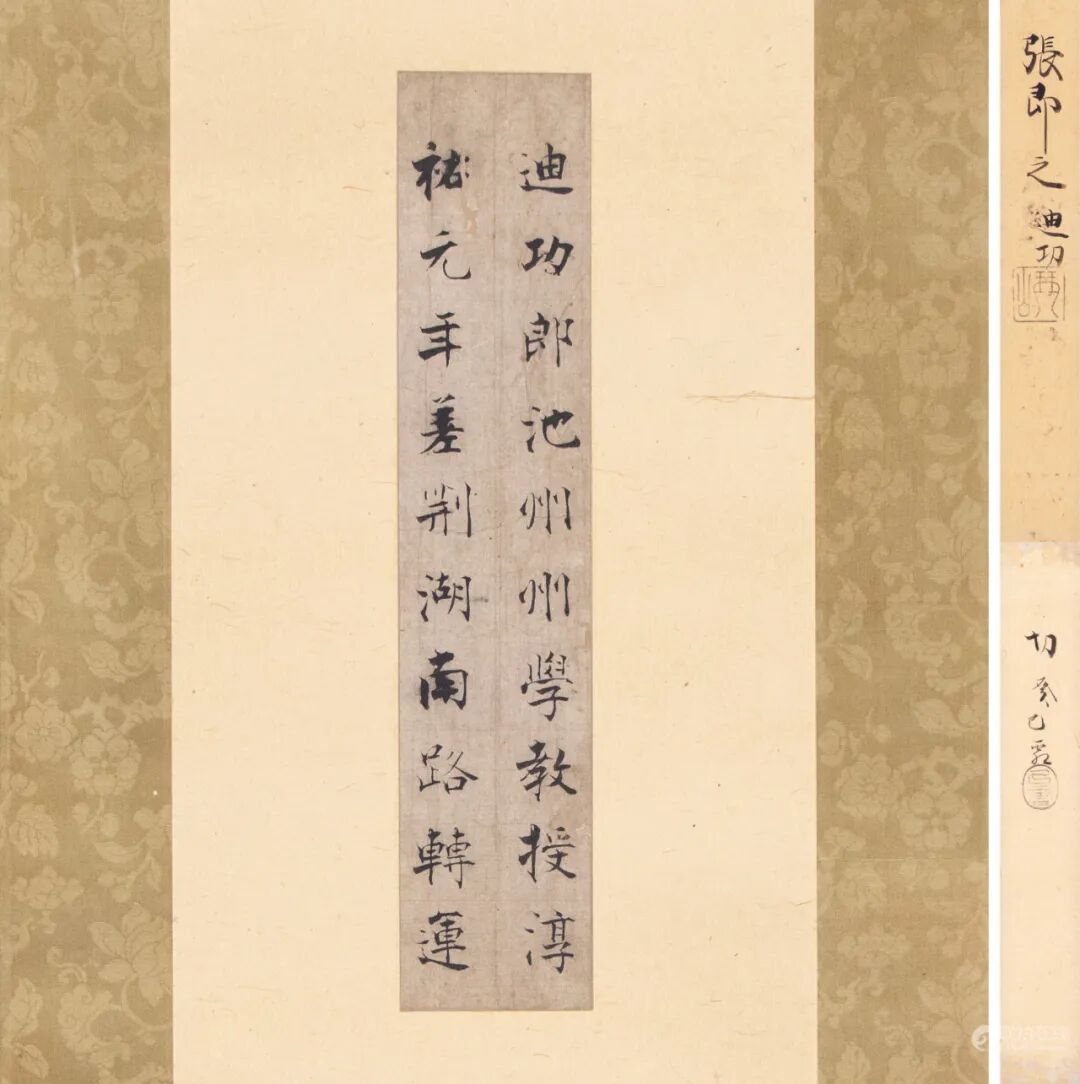 迪功郎池州州學教授淳
祐元年差荆湖南路轉運
張即之迪功
切 癸巳